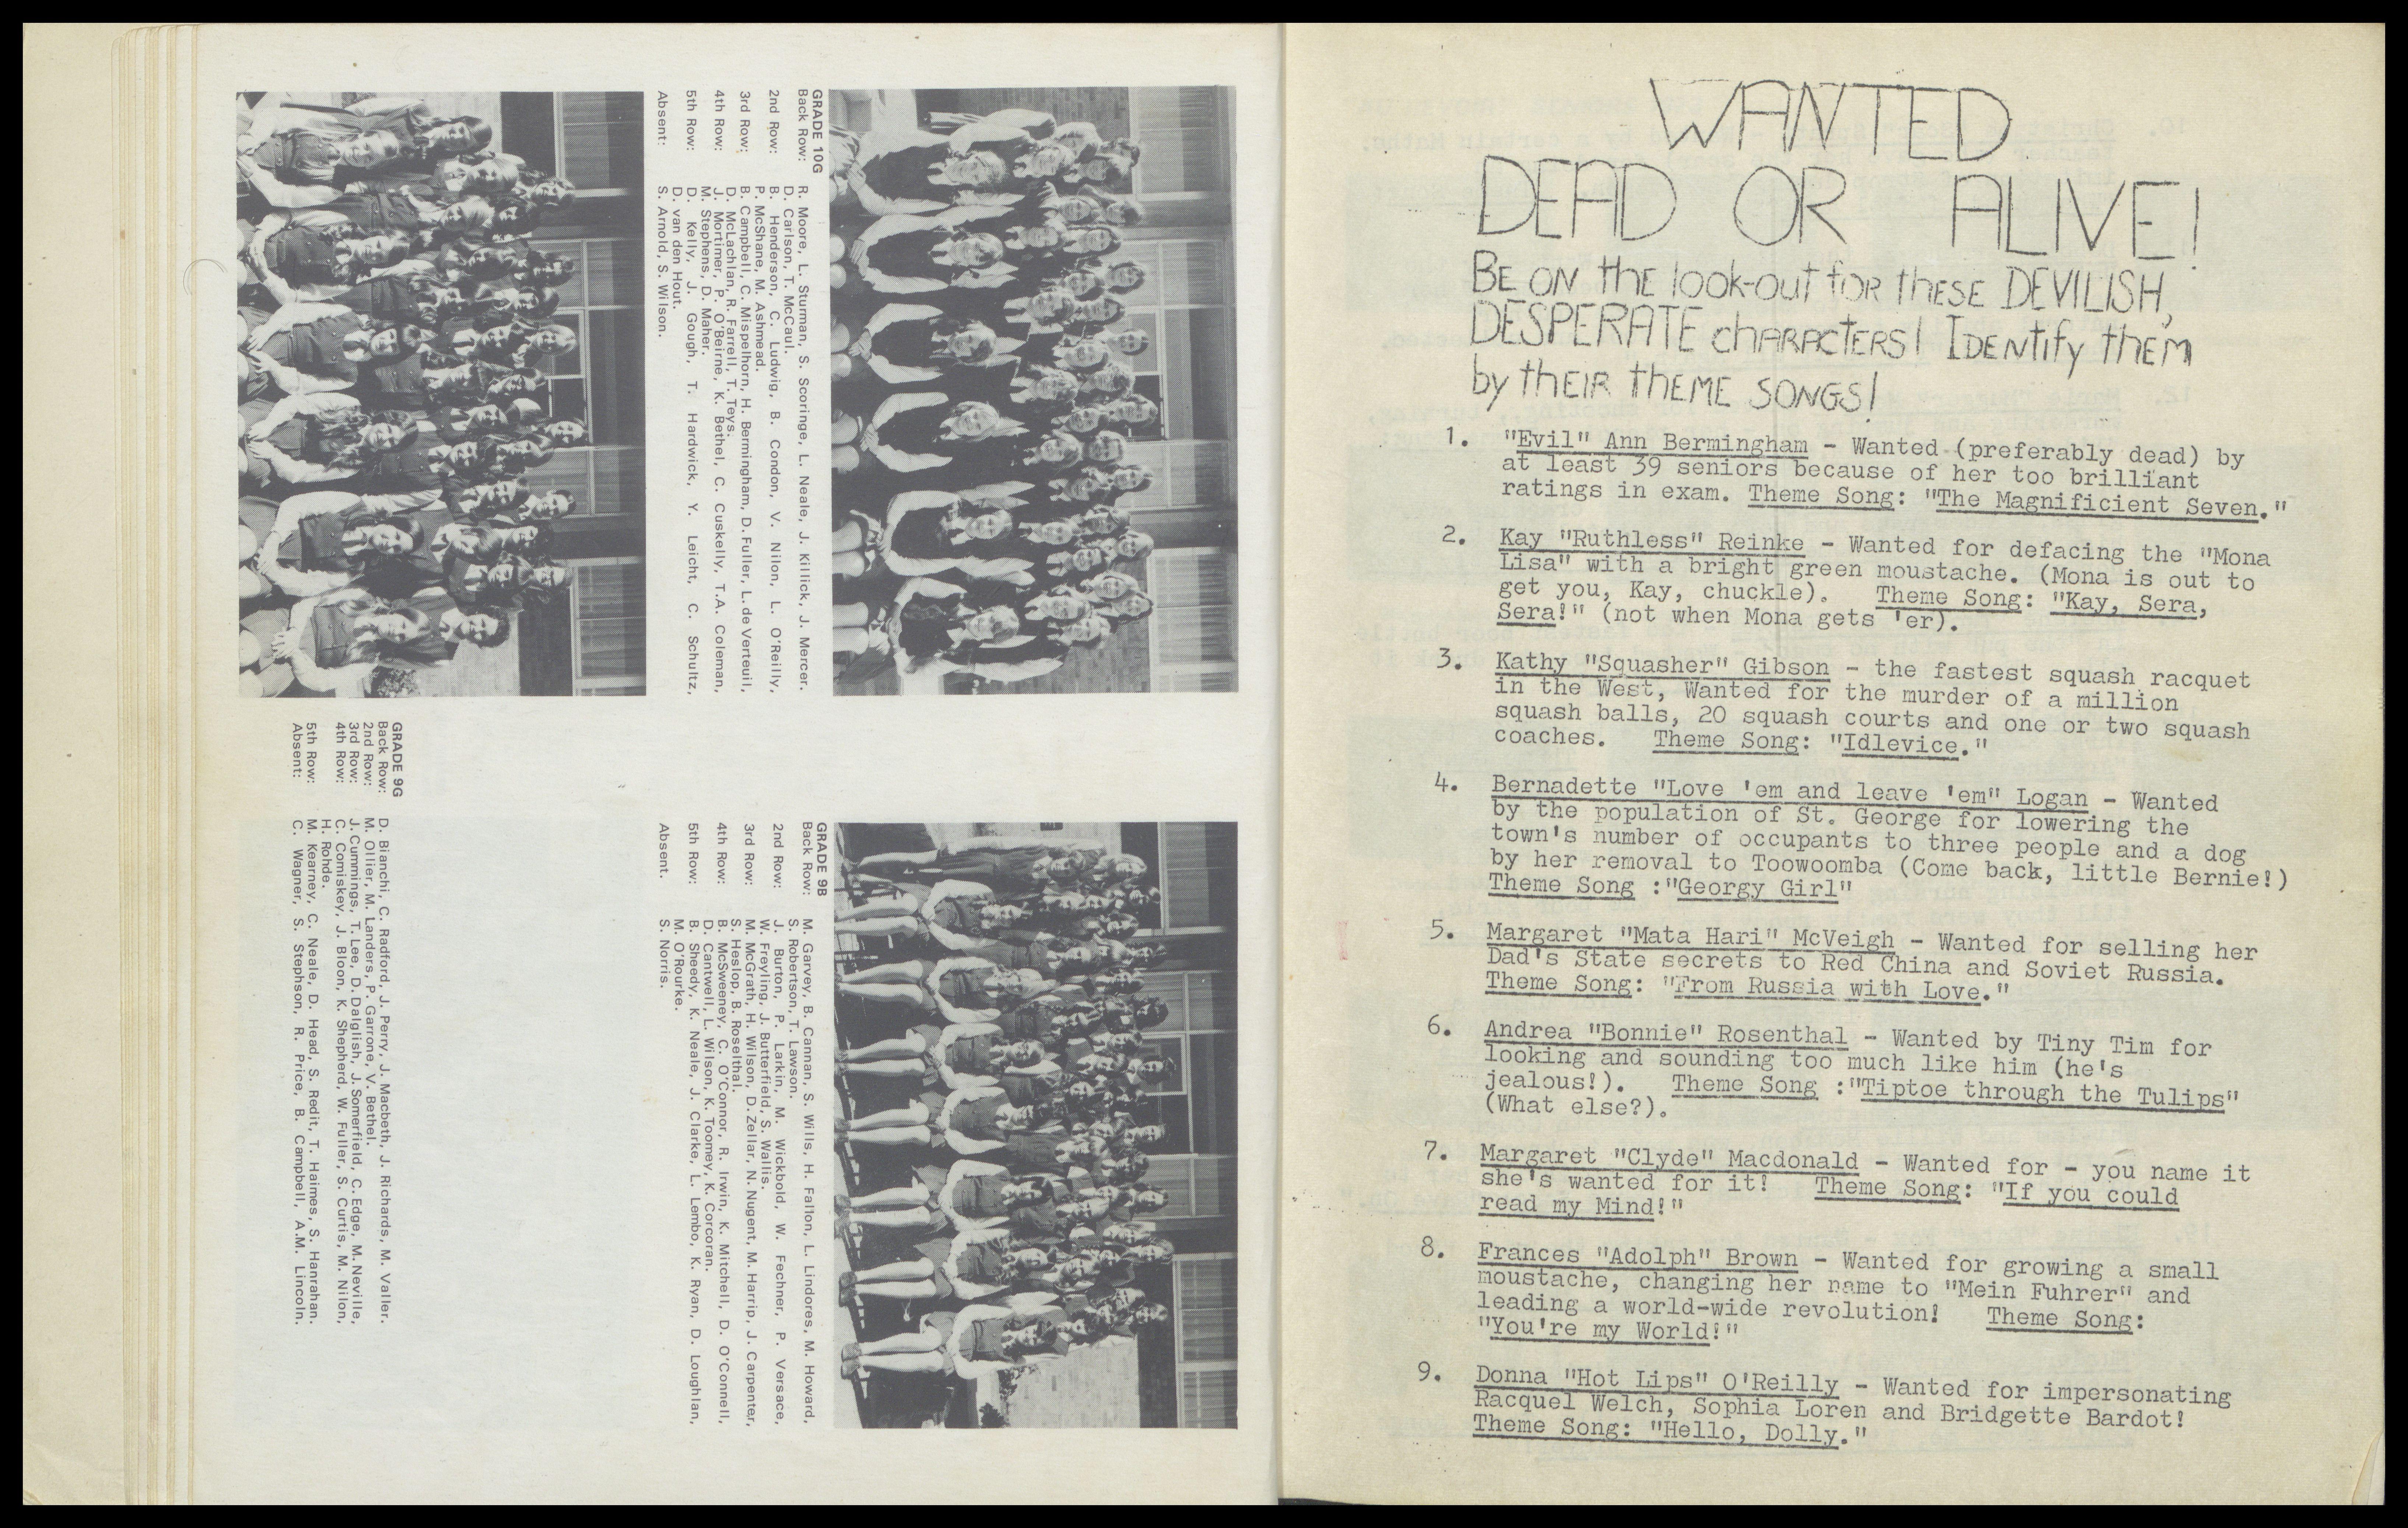 GRADE 10G
Back Row: R. Moore, L. Sturman, S. Scoringe, L. Neale, J. Killick, J. Mercer.
D. Carlson, T. McCaul.
2nd Row: B. Henderson, C. Ludwig, B. Condon, V. Nilon, L. O'Reilly,
P. McShane, M. Ashmead.
3rd Row: B. Campbell, C. Mispelhorn, H. Bermingham, D. Fuller, L. de Verteuil,
D. McLachlan, R. Farrell, T. Teys.
4th Row: J. Mortimer, P. O'Beirne, K. Bethel, C. Cuskelly, T.A. Coleman,
M. Stephens, D. Maher.
5th Row: D. Kelly, J. Gough, T. Hardwick, Y. Leicht, C. Schultz,
D. van den Hout.
Absent: S. Arnold, S. Wilson.
GRADE 9B
Back Row: M. Garvey, B. Cannan, S. Wills, H. Fallon, L. Lindores, M. Howard,
S. Robertson, T. Lawson.
2nd Row: J. Burton, P. Larkin, M. Wickbold, W. Fechner, P. Versace,
W. Freyling, J. Butterfield, S. Wallis.
3rd Row: M. McGrath, H. Wilson, D. Zellar, N. Nugent, M. Harrip, J. Carpenter,
S. Heslop, B. Roselthal.
4th Row: B. McSweeney, C. O'Connor, R. Irwin, K. Mitchell, D. O'Connell,
D. Cantwell, L. Wilson, K. Toomey, K. Corcoran.
5th Row: B. Sheedy, K. Neale, J. Clarke, L. Lembo, K. Ryan, D. Loughlan,
M. O'Rourke.
Absent. S. Norris.
GRADE 9G
Back Row: D. Bianchi, C. Radford, J. Perry, J. Macbeth, J. Richards, M. Valler.
2nd Row: M. Ollier, M. Landers, P. Garrone, V. Bethel.
3rd Row: J. Cummings, T. Lee, D. Dalglish, J. Somerfield, C. Edge, M. Neville,
4th Row: C. Comiskey, J. Bloon, K. Shepherd, W. Fuller, S. Curtis, M. Nilon,
H. Rohde.
5th Row: M. Kearney, C. Neale, D. Head, S. Redit, T. Haimes, S. Hanrahan.
Absent: C. Wagner, S. Stephson, R. Price, B. Campbell, A.M. Lincoln.
WANTED
DEAD OR ALIVE!
BE ON thE look-out foR thESE DEVILISH,
DESPERATE chARACTERS! IDENtify thEM
by thEIR thEME SONGS!
1. "Evil" Ann Bermingham - Wanted (preferably dead) by
at least 39 seniors because of her too brilliant
ratings in exam. Theme Song: "The Magnificient Seven."
2. Kay "Ruthless" Reinke - Wanted for defacing the "Mona
Lisa" with a bright green moustache. (Mona is out to
get you, Kay, chuckle). Theme Song: "Kay, Sera,
Sera!" (not when Mona gets 'er).
3. Kathy "Squasher" Gibson - the fastest squash racquet
in the West, Wanted for the murder of a million
squash balls, 20 squash courts and one or two squash
coaches. Theme Song: "Idlevice."
4. Bernadette "Love 'em and leave 'em" Logan - Wanted
by the population of St. George for lowering the
town's number of occupants to three people and a dog
by her removal to Toowoomba (Come back, little Bernie!)
Theme Song :"Georgy Girl"
5. Margaret "Mata Hari" McVeigh - Wanted for selling her
Dad's State secrets to Red China and Soviet Russia.
Theme Song: "From Russia with Love."
6. Andrea "Bonnie" Rosenthal - Wanted by Tiny Tim for
looking and sounding too much like him (he's
jealous!). Theme Song :"Tiptoe through the Tulips"
(What else?).
7. Margaret "Clyde" Macdonald - Wanted for - you name it
she's wanted for it! Theme Song: "If you could
read my Mind!"
8. Frances "Adolph" Brown - Wanted for growing a small
moustache, changing her name to "Mein Fuhrer" and
leading a world-wide revolution! Theme Song:
"You're my World!"
9. Donna "Hot Lips" O'Reilly - Wanted for impersonating
Racquel Welch, Sophia Loren and Bridgette Bardot!
Theme Song: "Hello, Dolly."